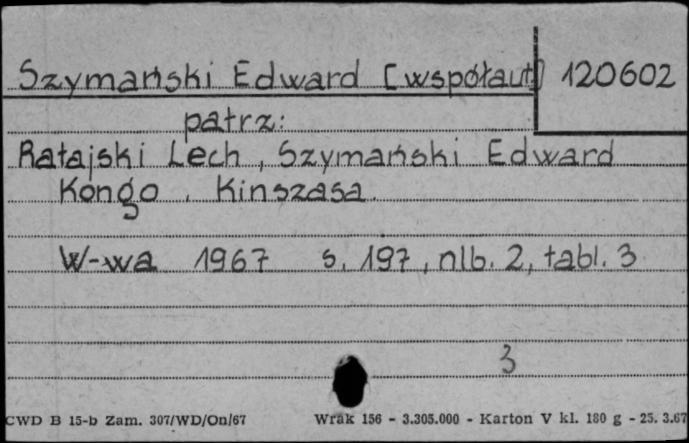 Szymański Edward [współaut] 120602
patrz:
Ratajski Lech, Szymański Edward
Kongo. Kinszasa.
W-wa 1967 s. 197, nlb. 2, tabl. 3
3
CWD B 15-b Zam. 307/WD/On/67 Wrak 156 - 3.305.000 - Karton V kl. 180 g - 25. 3.67